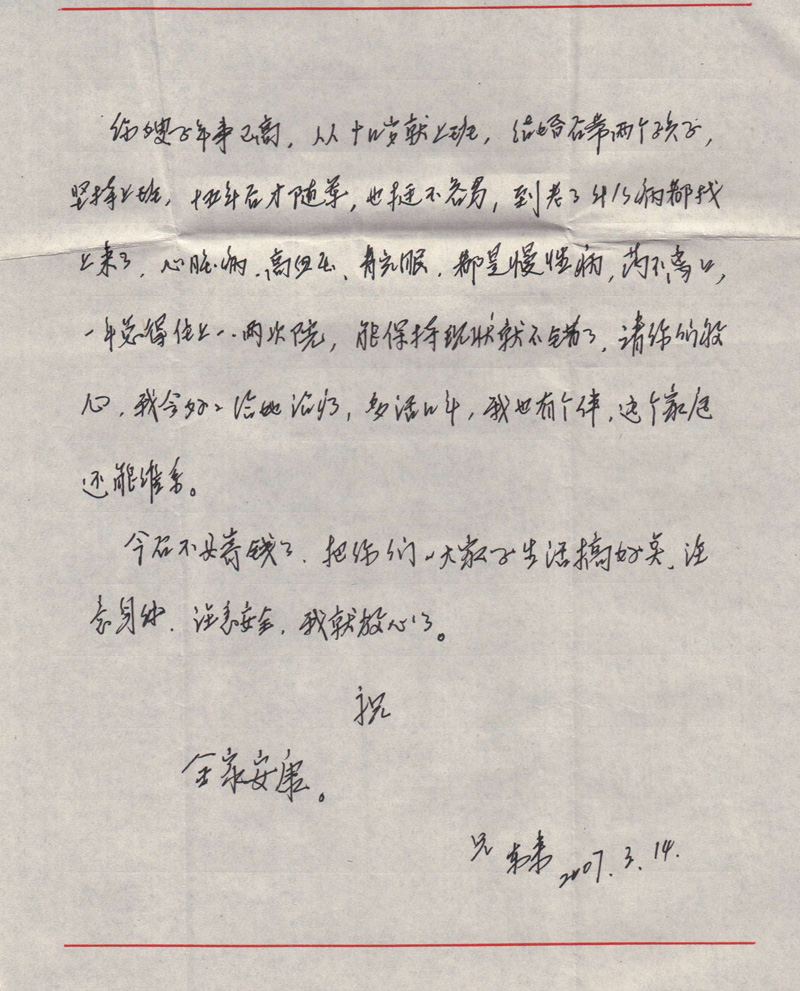 你嫂子年事已高，从十几岁就上班，结婚后带两个孩子，
坚持上班，十五年后才随军，也挺不容易，到老了什么病都找
上来了，心脏病、高血压、青光眼，都是慢性病，药不离口，
一年总得住上一、两次院，能保持现状就不错了，请你们放
心，我会好好给她治疗，多活几年，我也有个伴，这个家庭
还能维系。
今后不要寄钱了，把你们一大家子生活搞好矣，注
意身体，注意安全，我就放心了。
祝
全家安康。
兄 2007.3.14.